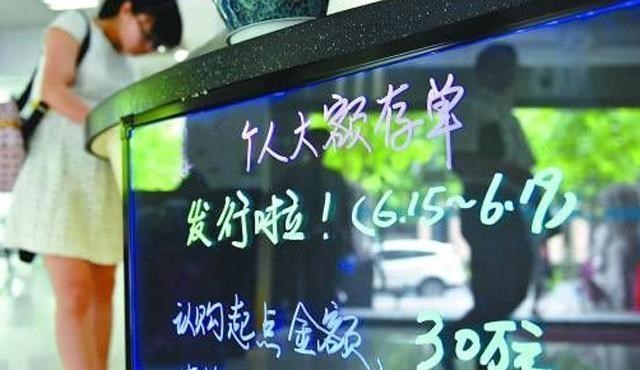 个人大额存单
发行啦！(6.15~6.17)
认购起点金额
30万元